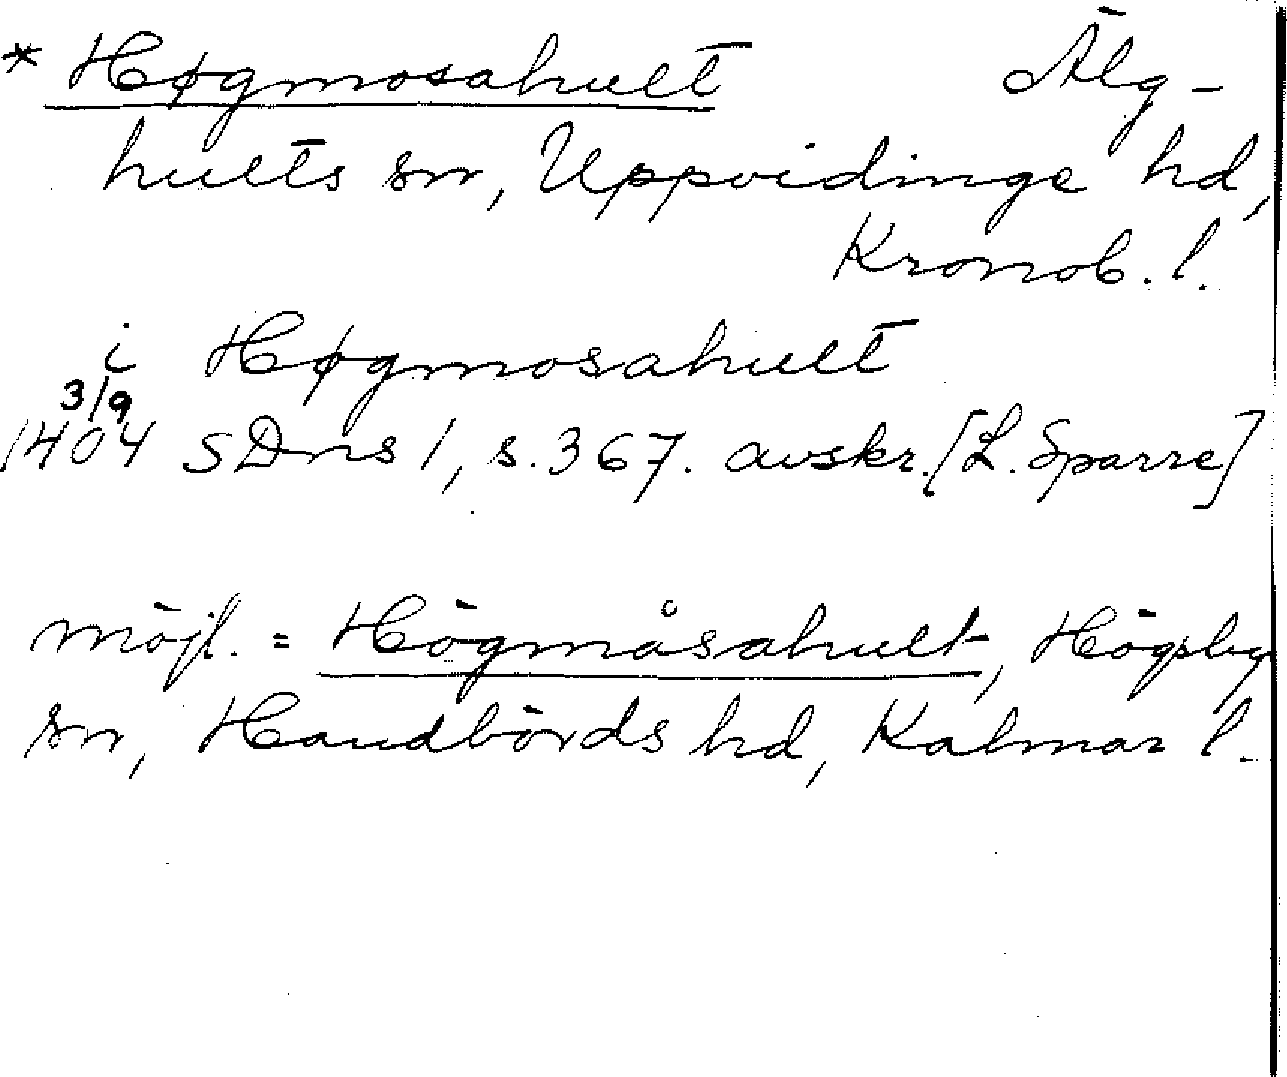 * Høgmosahult Älg-
hults sn, Uppvidinge hd,
Kronob. l.
i Høgmosahult
3/9
1404 SDns 1, s. 367. avskr. [L. Sparre]
möjl. = Högmåsahult, Högsby
sn, Handbörds hd, Kalmar l.